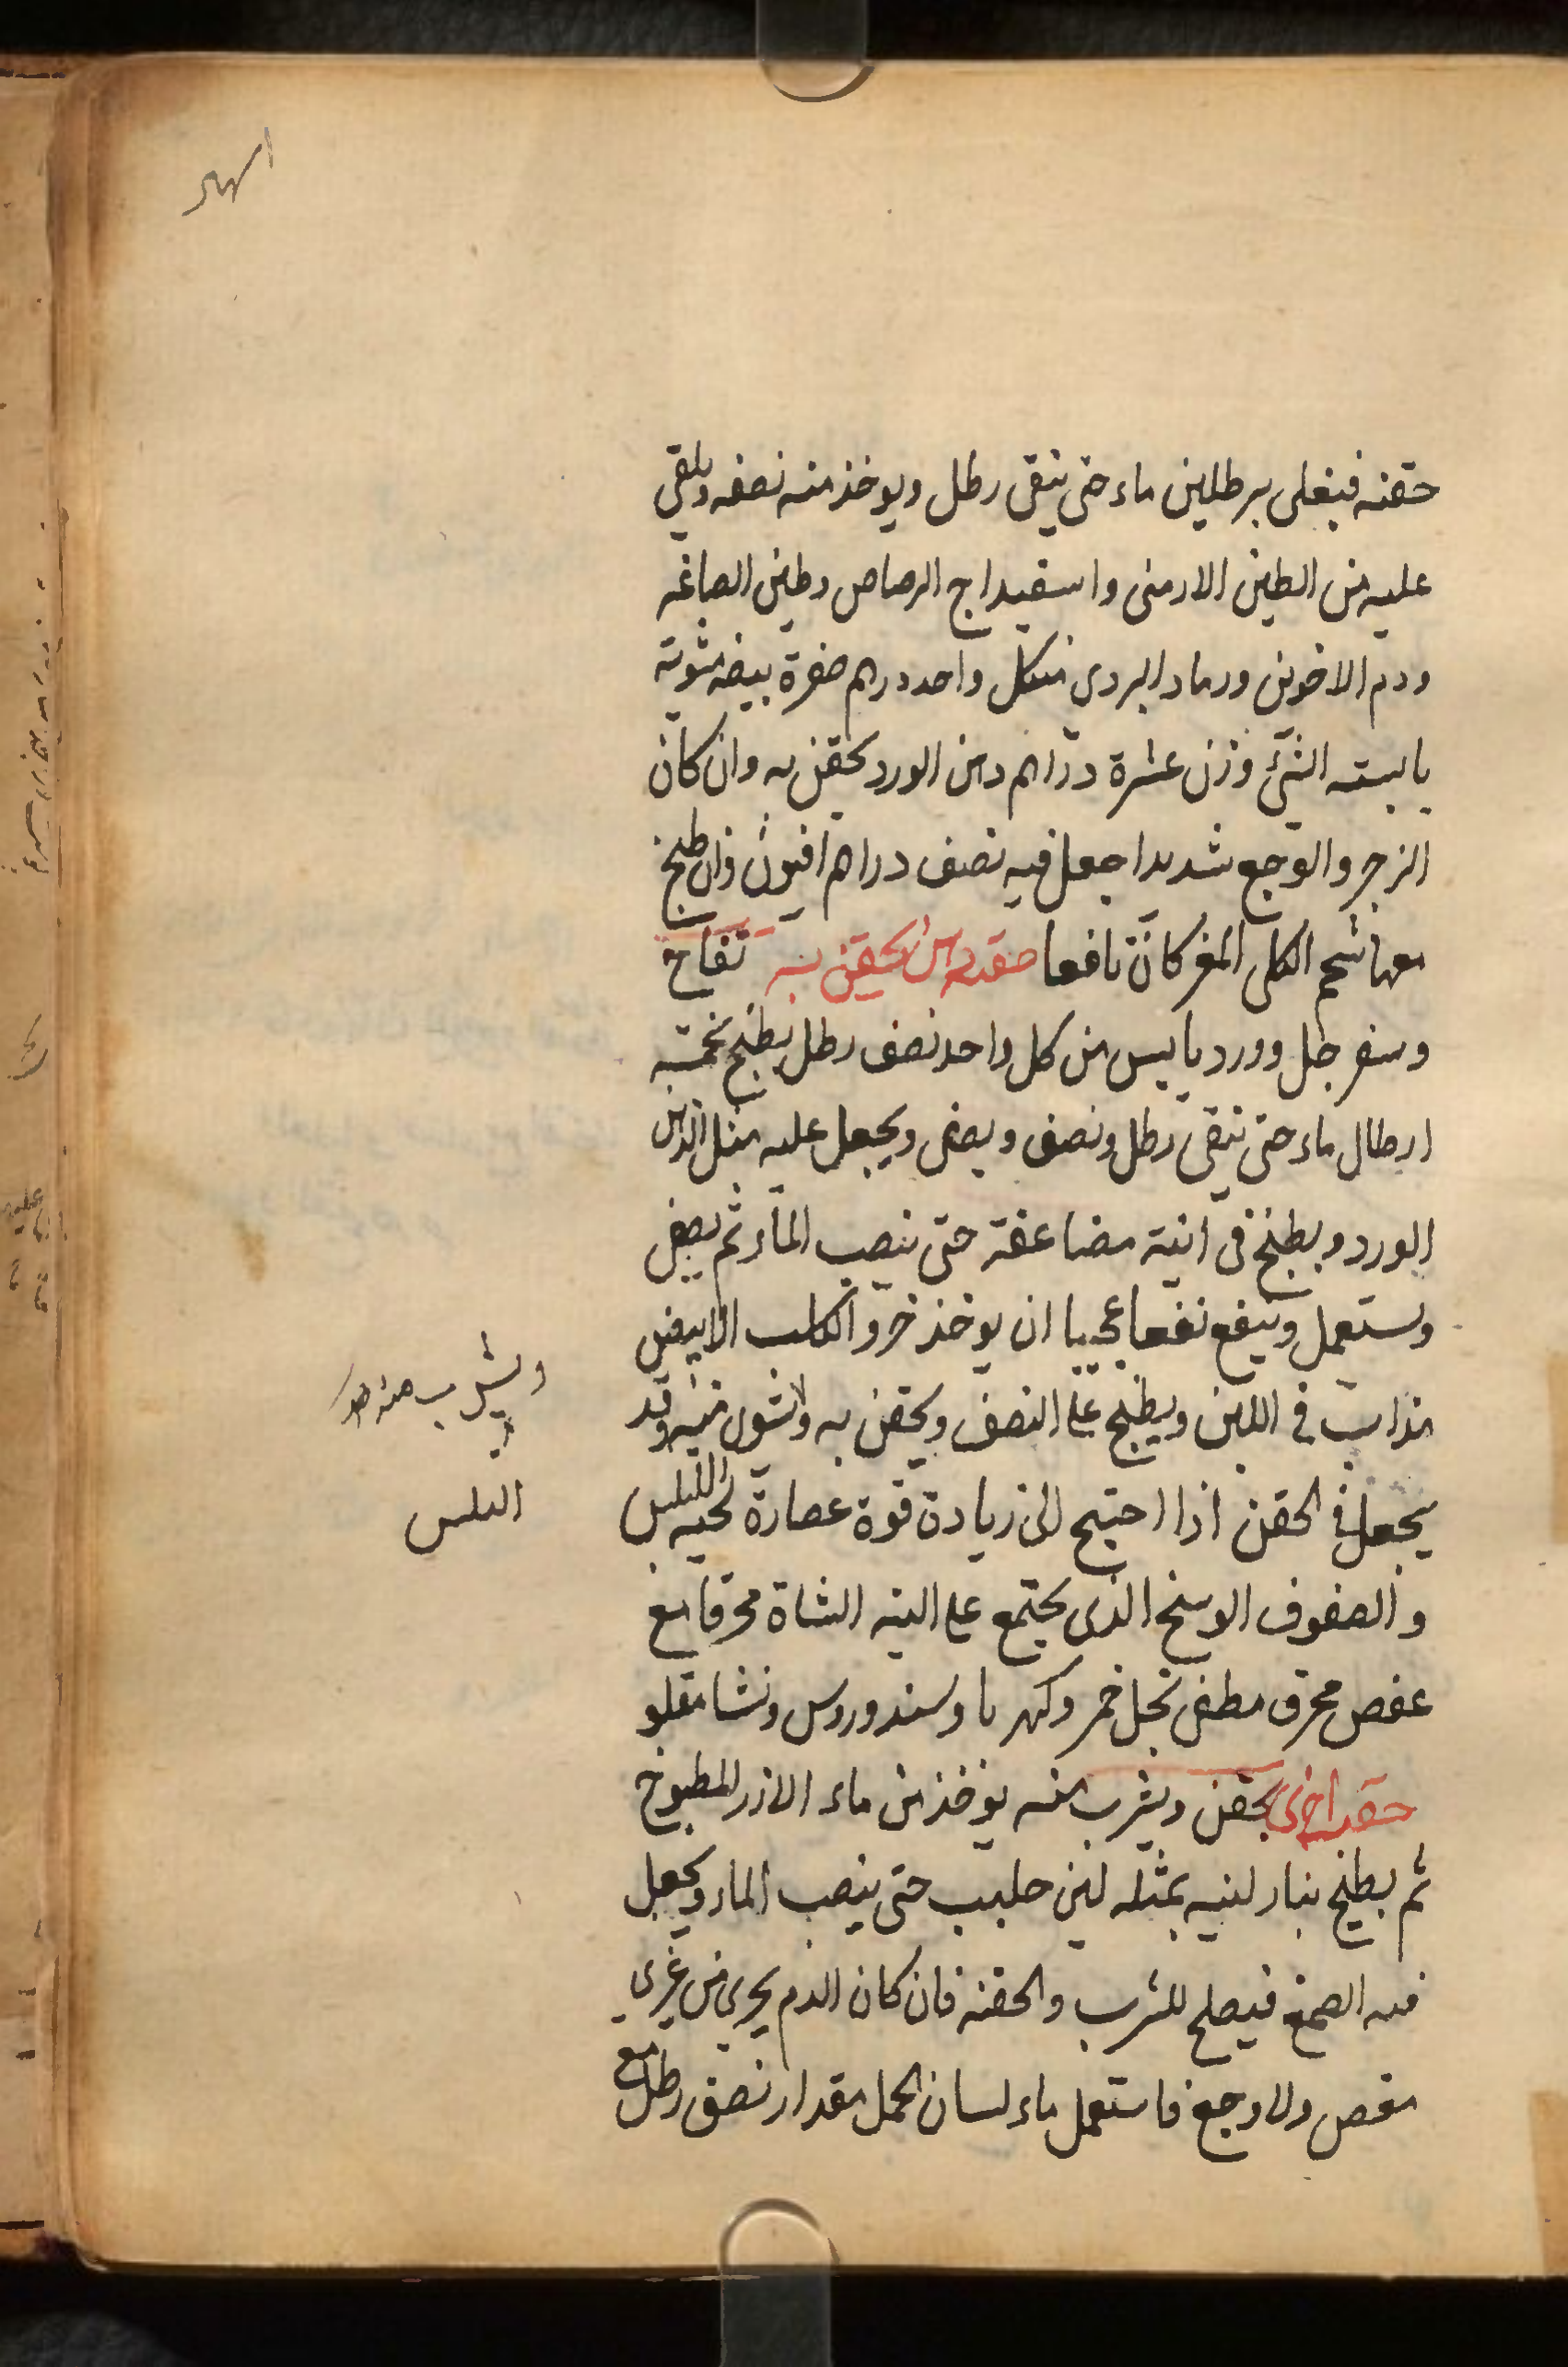 حقنه فيغلى برطلين ماء حتى يبقى رطل ويوخذ منه نصفه ويلقي
عليه من الطين الارمنى واسفيداج الرصاص وطين الصاغه
ودم الاخوين ورماد البردى من كل واحد درهم صفرة بيضه مشويه
يابسته وزن عشرة دراهم دهن الورد يحقن به وان كان
الزجر والوجع شديدا جعل فيه نصف دراهم افيون وان طبخ
معها شحم الكلى المغر كان نافعا حقنه يحقن به تفاح
وسفرجل وورد يابس من كل واحد نصف رطل يطبخ بخمسه
ارطال ماء حتى يبقى رطل ونصف ويصفى ويجعل عليه مثل الدهن
الورد ويطبخ فى انية مضاعفة حتى ينصب الماء ثم يصفى
ويستعمل وينفع نفعا عجيبا ان يوخذ خرو الكلب الابيض
مذاب فى اللبن ويطبخ على النصف ويحقن به منه وقد
يجعل فى الحقن اذا احتيج الى زيادة قوة عصارة لحيه التيس
والصفوف الوسخ الذى يجتمع على اليه الشاة محرقا مع
عفص محرق مطفى بخل خمر وكهربا وسندوروس ونشا مقلو
حقنه اخرى يحقن ويشرب منه يوخذ من ماء الارز المطبوخ
ثم يطبخ بنار لينه بمثله لبن حليب حتى ينصب الماء ويجعل
فيه الصمغ فيصلح للشرب والحقنه فان كان الدم يجرى من غير
مغص ولا وجع فاستعمل ماء لسان الحمل مقدار نصف رطل مع
ويشرب منه